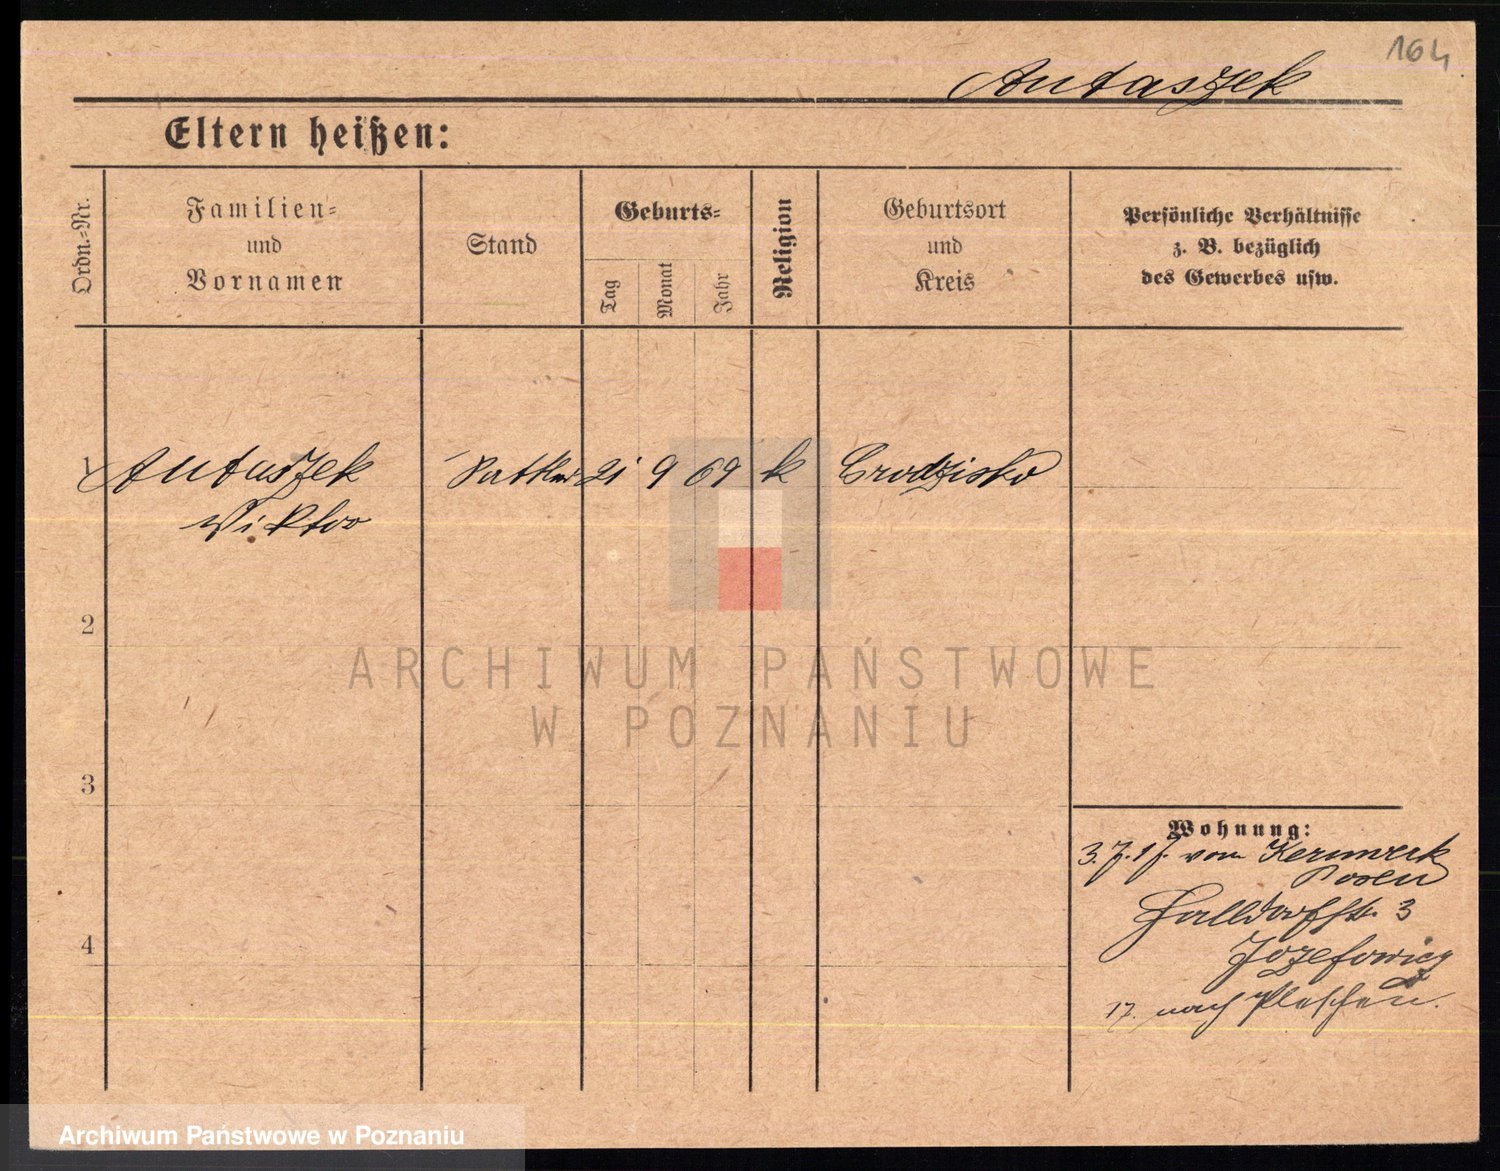 164
Antaszek
Eltern heißen:
Ordn.-Nr.
Familien-
und
Vornamen
Stand
Geburts-
Tag
Monat
Jahr
Religion
Geburtsort
und
Kreis
Persönliche Verhältnisse
z. B. bezüglich
des Gewerbes usw.
1 Antaszek 21 9 69 k Grodzisko
Wiktor
2
3
4
Wohnung:
3. 7. 17. vom Kernwerk
Posen
3
Jozefowicz
17. nach Pleschen.
ARCHIWUM PAŃSTWOWE
W POZNANIU
Archiwum Państwowe w Poznaniu